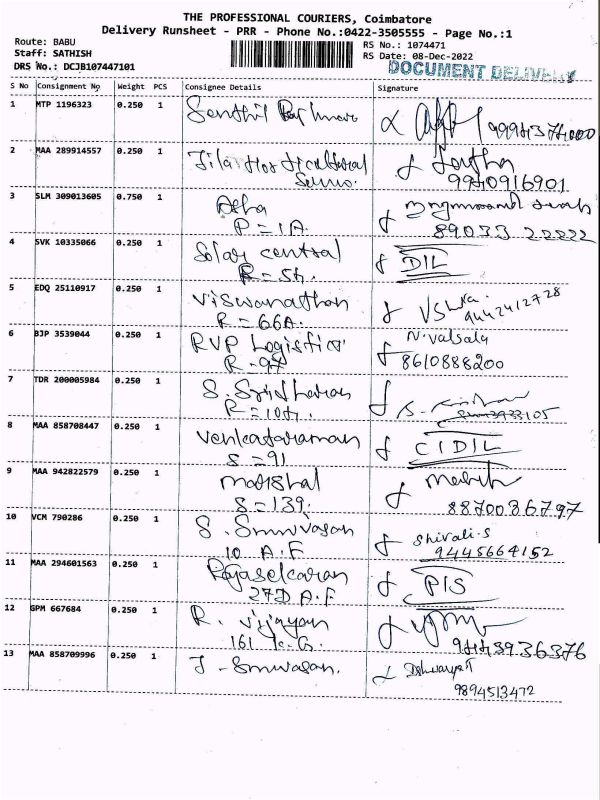 THE PROFESSIONAL COURIERS, Coimbatore
Delivery Runsheet - PRR - Phone No.:0422-3505555 - Page No.:1
Route: BABU
Staff: SATHISH
DRS No.: DCJB107447101
RS No.: 1074471
RS Date: 08-Dec-2022
DOCUMENT DELIVERY
S No Consignment No Weight PCS Consignee Details Signature
1 MTP 1196323 0.250 1 Senthil
2 MAA 289914557 0.250 1
9940916901
3 SLM 309013605 0.750 1 Asha
P = 1A.
89033 22222
4 SVK 10335066 0.250 1 Solar central DIL
R = 54.
5 EDQ 25110917 0.250 1 Viswanathan
9442412728
R = 66A.
6 BJP 3539044 0.250 1 RVP Logistics N. Valsala
R = 97 8610888200
7 TDR 200005984 0.250 1 S. Sridharan
8 MAA 858708447 0.250 1 Venkataraman CIDIL
S = 91
9 MAA 942822579 0.250 1
S = 139. 8870036797
10 VCM 790286 0.250 1 S. Srinivasan Shivali.S
10 A.F 9445664152
11 MAA 294601563 0.250 1 Rajasekaran PIS
27D A.F
12 GPM 667684 0.250 1 R. Vijayan
161
13 MAA 858709996 0.250 1 J. Srinivasan.
9894513472